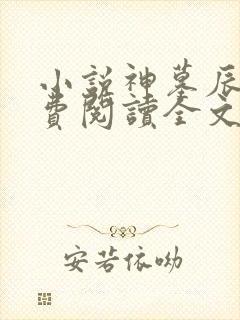 小說神墓辰
費閱讀全文
安若依呦